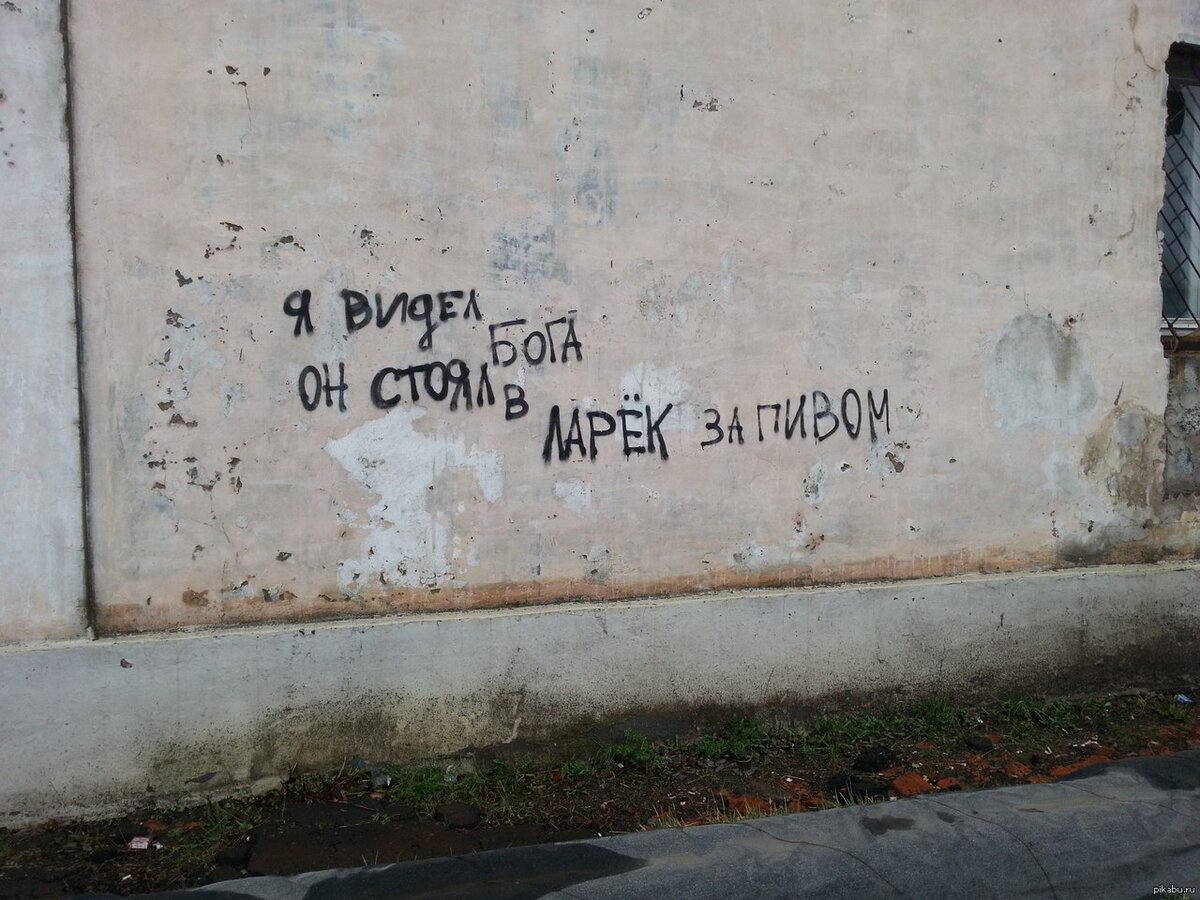 Я ВИДЕЛ БОГА
ОН СТОЯЛ В ЛАРЁК ЗА ПИВОМ
pikabu.ru